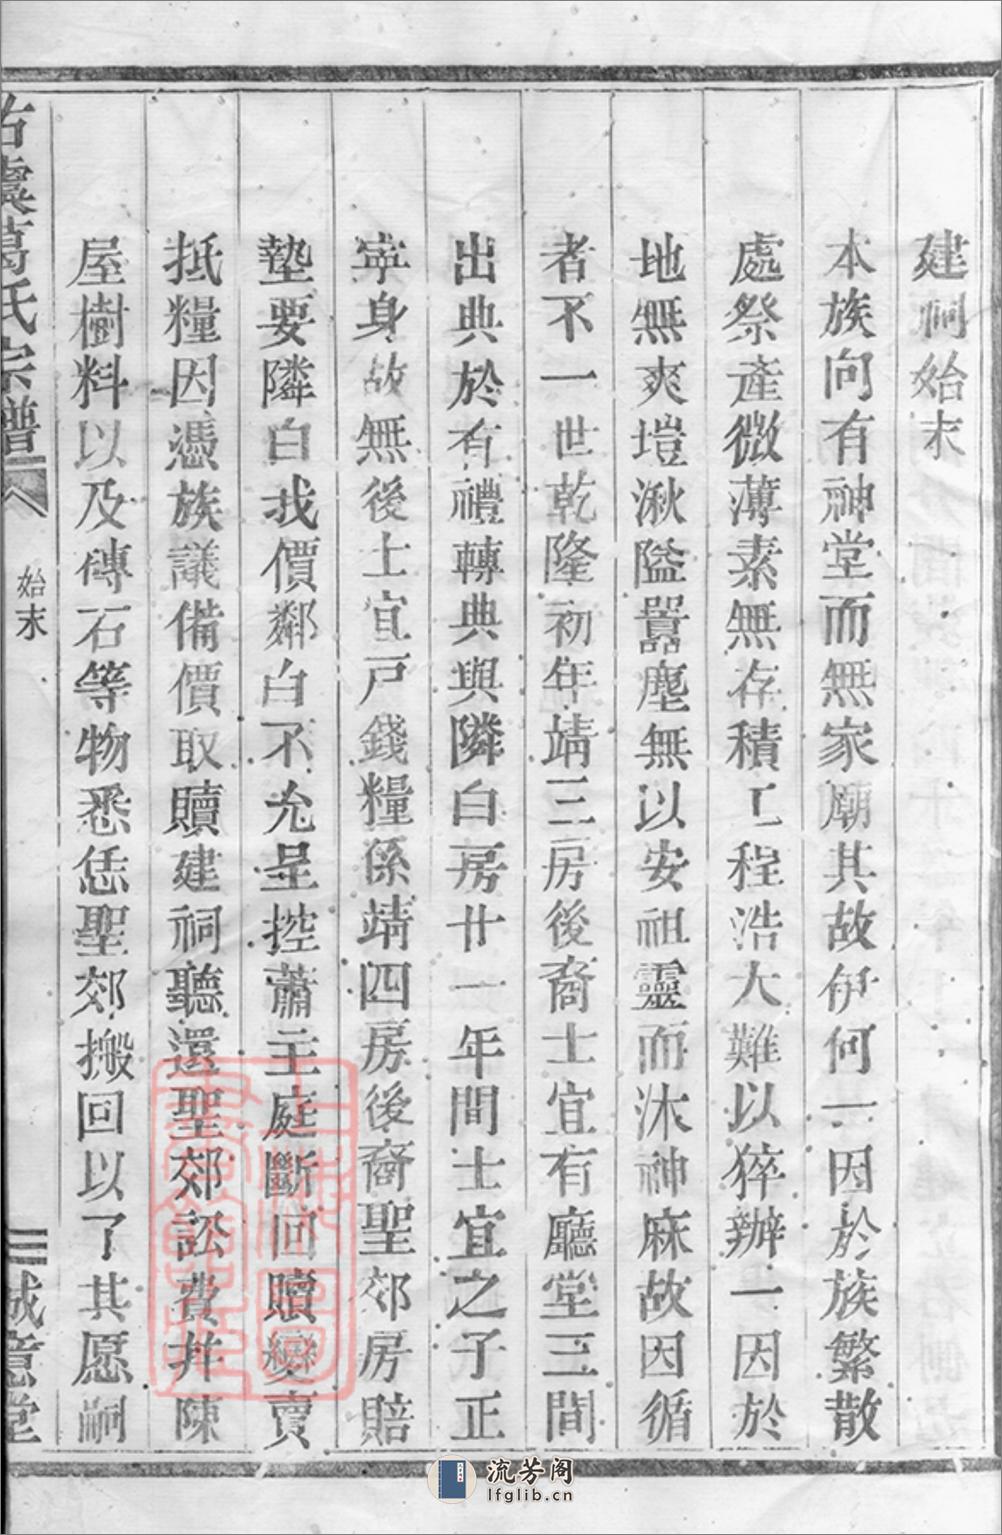 建祠始末
本族向有神堂而無家廟其故伊何一因於族繁散
處祭產微薄素無存積工程浩大難以猝辦一因於
地無爽塏湫隘囂塵無以安祖靈而沐神庥故因循
者不一世乾隆初年靖三房後裔士宜有廳堂三間
出典於有禮轉典與隣白房廿一年間士宜之子正
寧身故無後士宜戶錢糧係靖四房後裔聖郊房賠
墊要隣白找價鄰白不允呈控蕭主庭斷回贖變賣
抵糧因憑族議備價取贖建祠聽還聖郊訟費并陳
屋樹料以及磚石等物悉恁聖郊搬回以了其愿嗣
古虞葛氏宗譜
始末
三
誠意堂
流芳阁
lfglib.cn